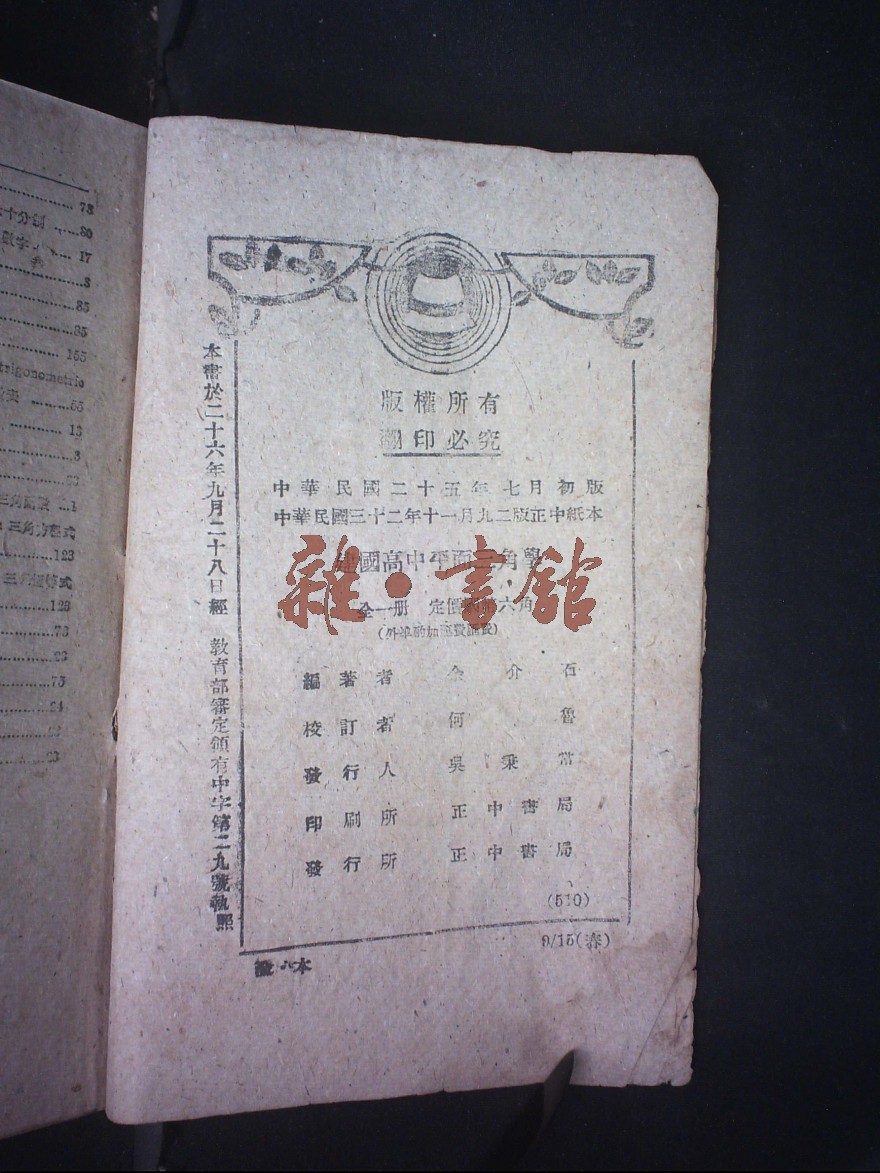 版權所有
翻印必究
中華民國二十五年七月初版
中華民國三十二年十一月九二版正中紙本
建國高中平面三角學
雜·書館
全一册 定價 六角
(外埠酌加運費滙費)
編著者 余介石
校訂者 何魯
發行人 吳秉常
印刷所 正中書局
發行所 正中書局
(510)
9/15(春)
本書於二十六年九月二十八日經 教育部審定領有中字第二九號執照
78
十分制 80
17
3
85
85
155
trigonometric
55
13
3
1
三角方程式
123
128
73
23
75
24